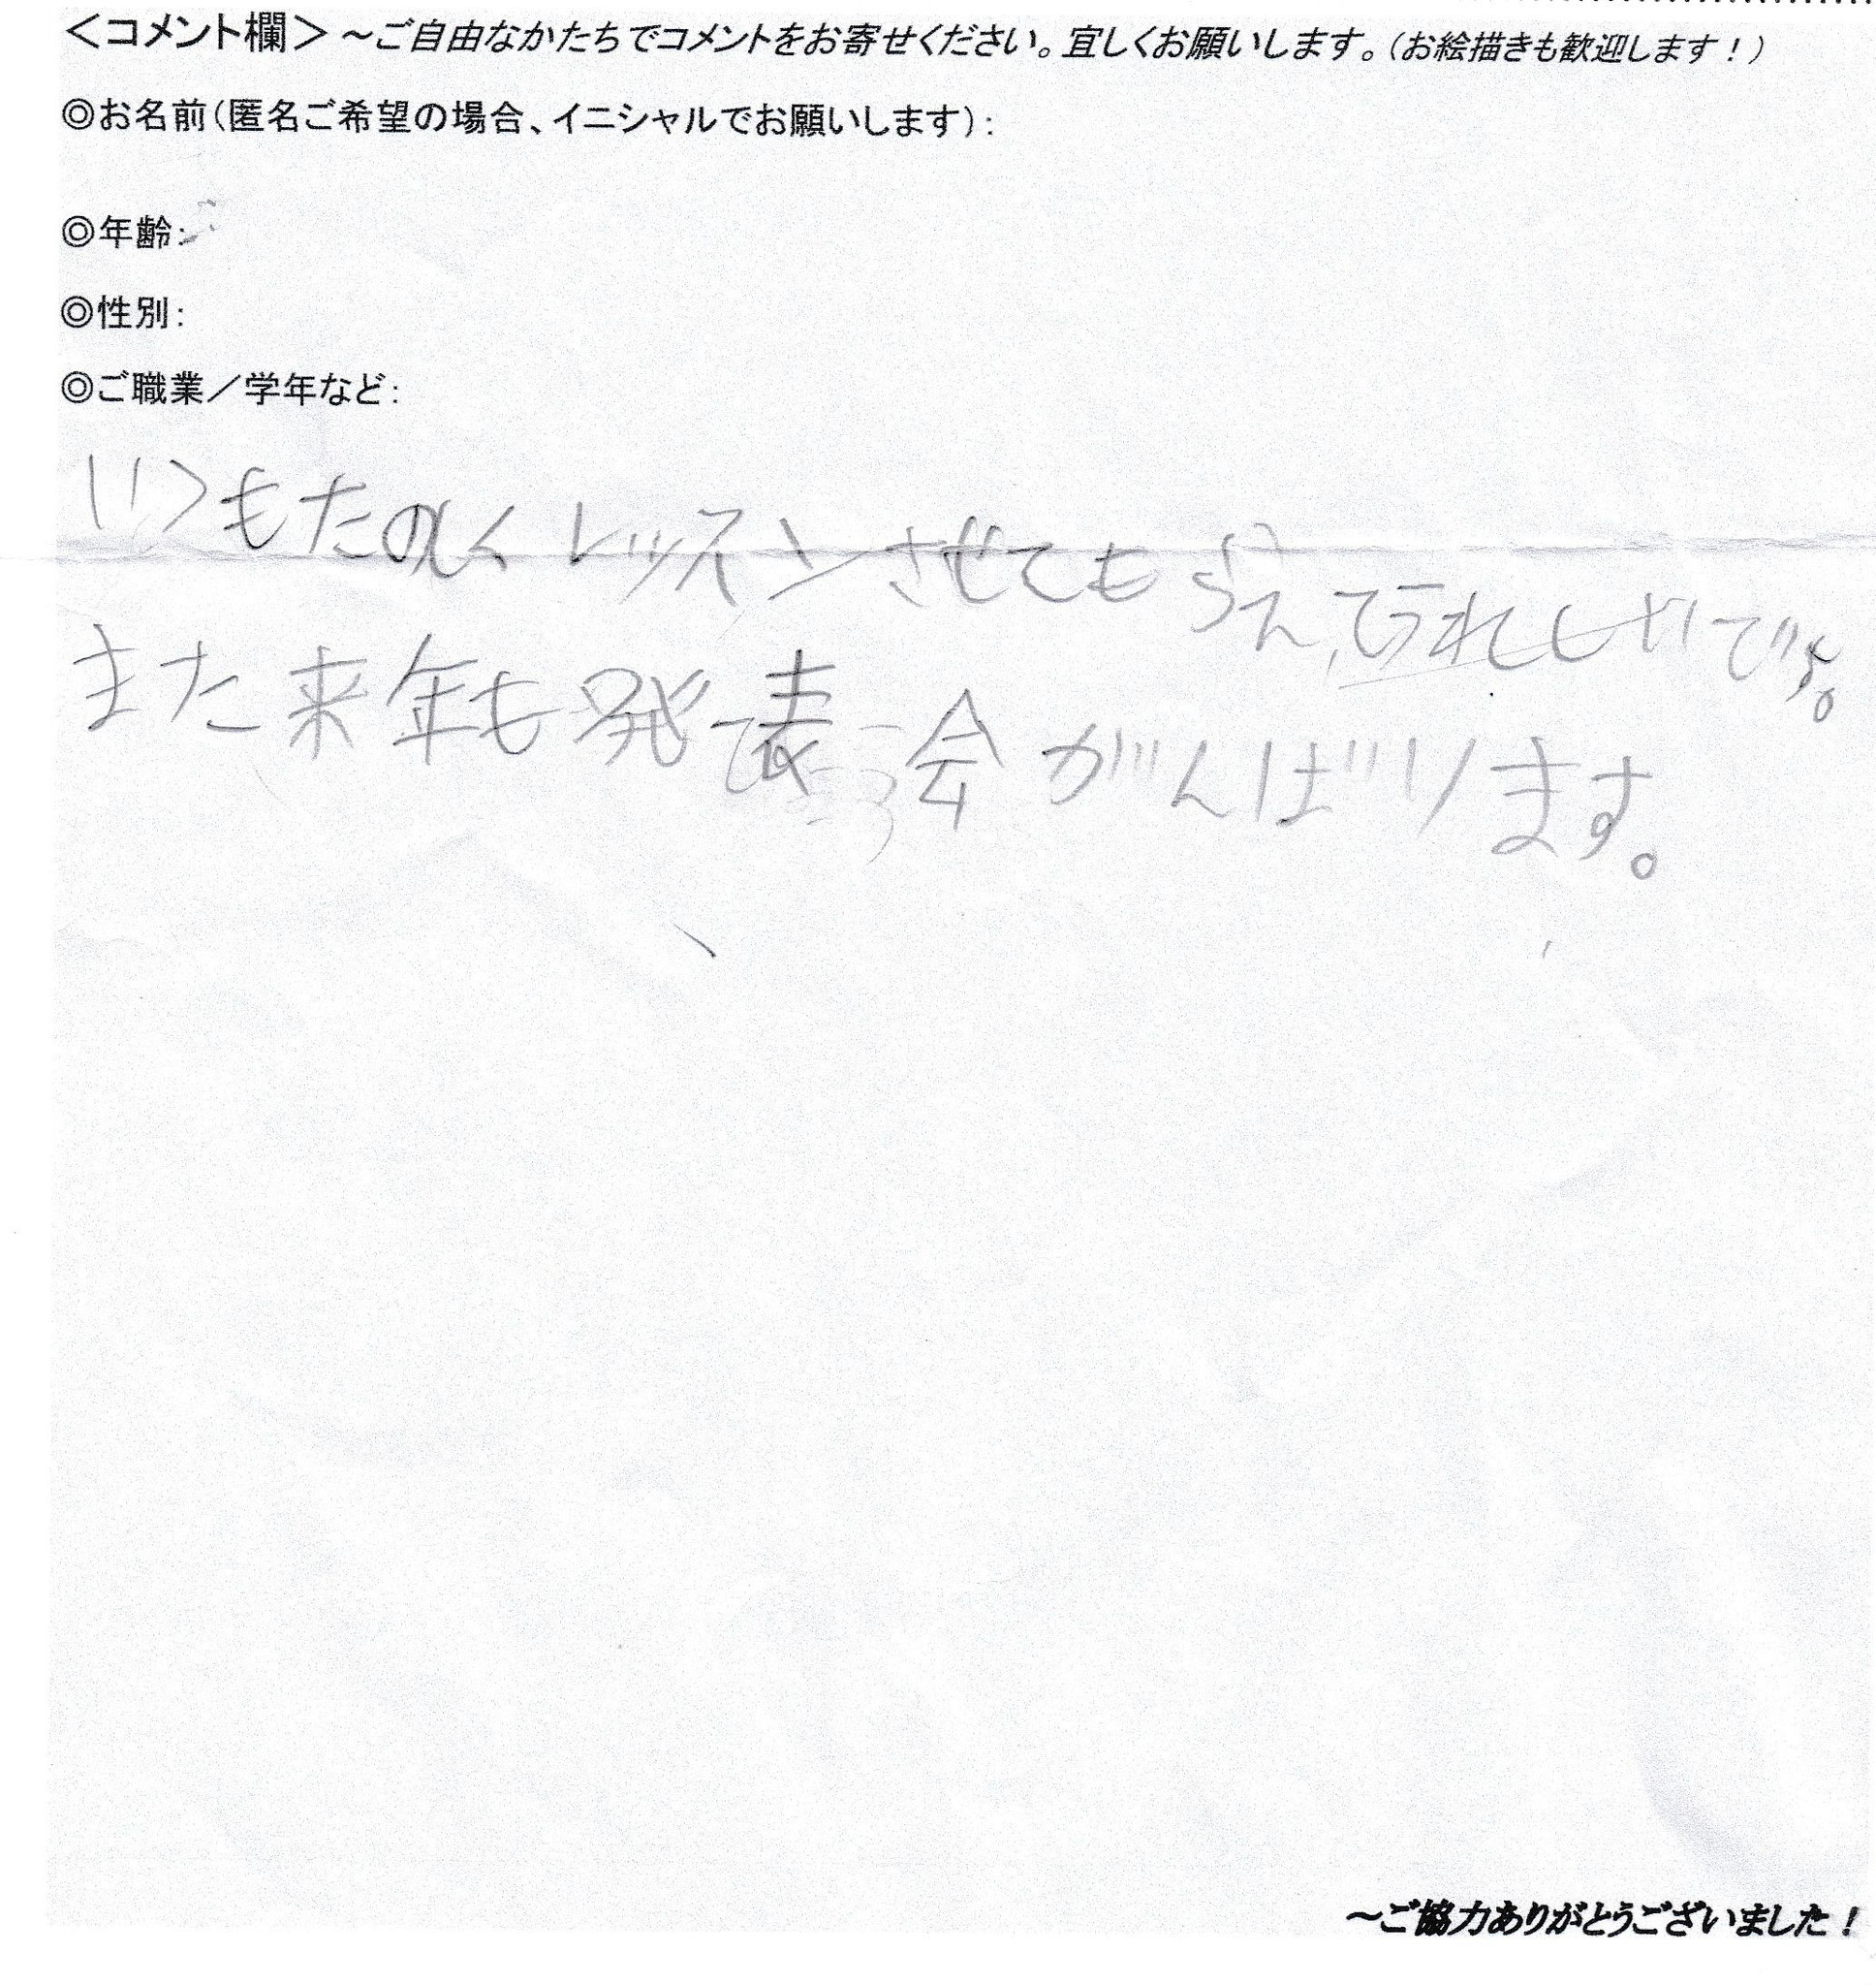 ＜コメント欄＞～ご自由なかたちでコメントをお寄せください。宜しくお願いします。(お絵描きも歓迎します！)
◎お名前(匿名ご希望の場合、イニシャルでお願いします)：
◎年齢：
◎性別：
◎ご職業／学年など：
いつもたのしくレッスンさせてもらえてうれしいです。
また来年も発表会がんばります。
～ご協力ありがとうございました！